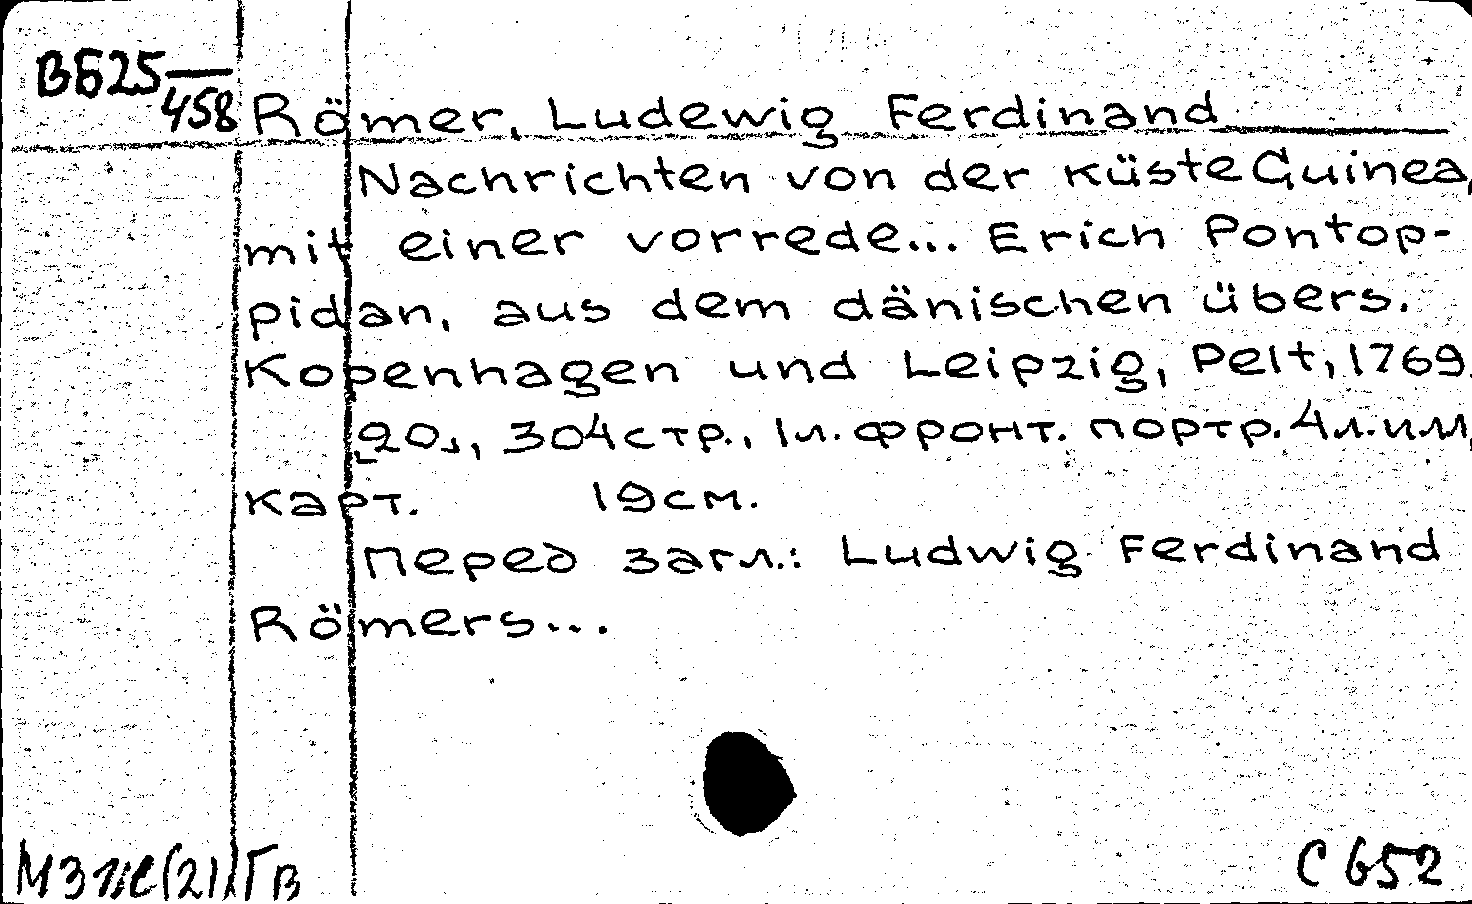 ВБ25
458
Römer, Ludewig Ferdinand
Nachrichten von der küste Guinea,
mit einer vorrede... Erich Pontop-
pidan, aus dem dänischen übers.
Kopenhagen und Leipzig, Pelt, 1769.
[20], 304 стр., 1 л. фронт. портр. 4 л. илл,
карт. 19 см.
Перед загл.: Ludwig Ferdinand
Römers...
(2) Гв
С 652